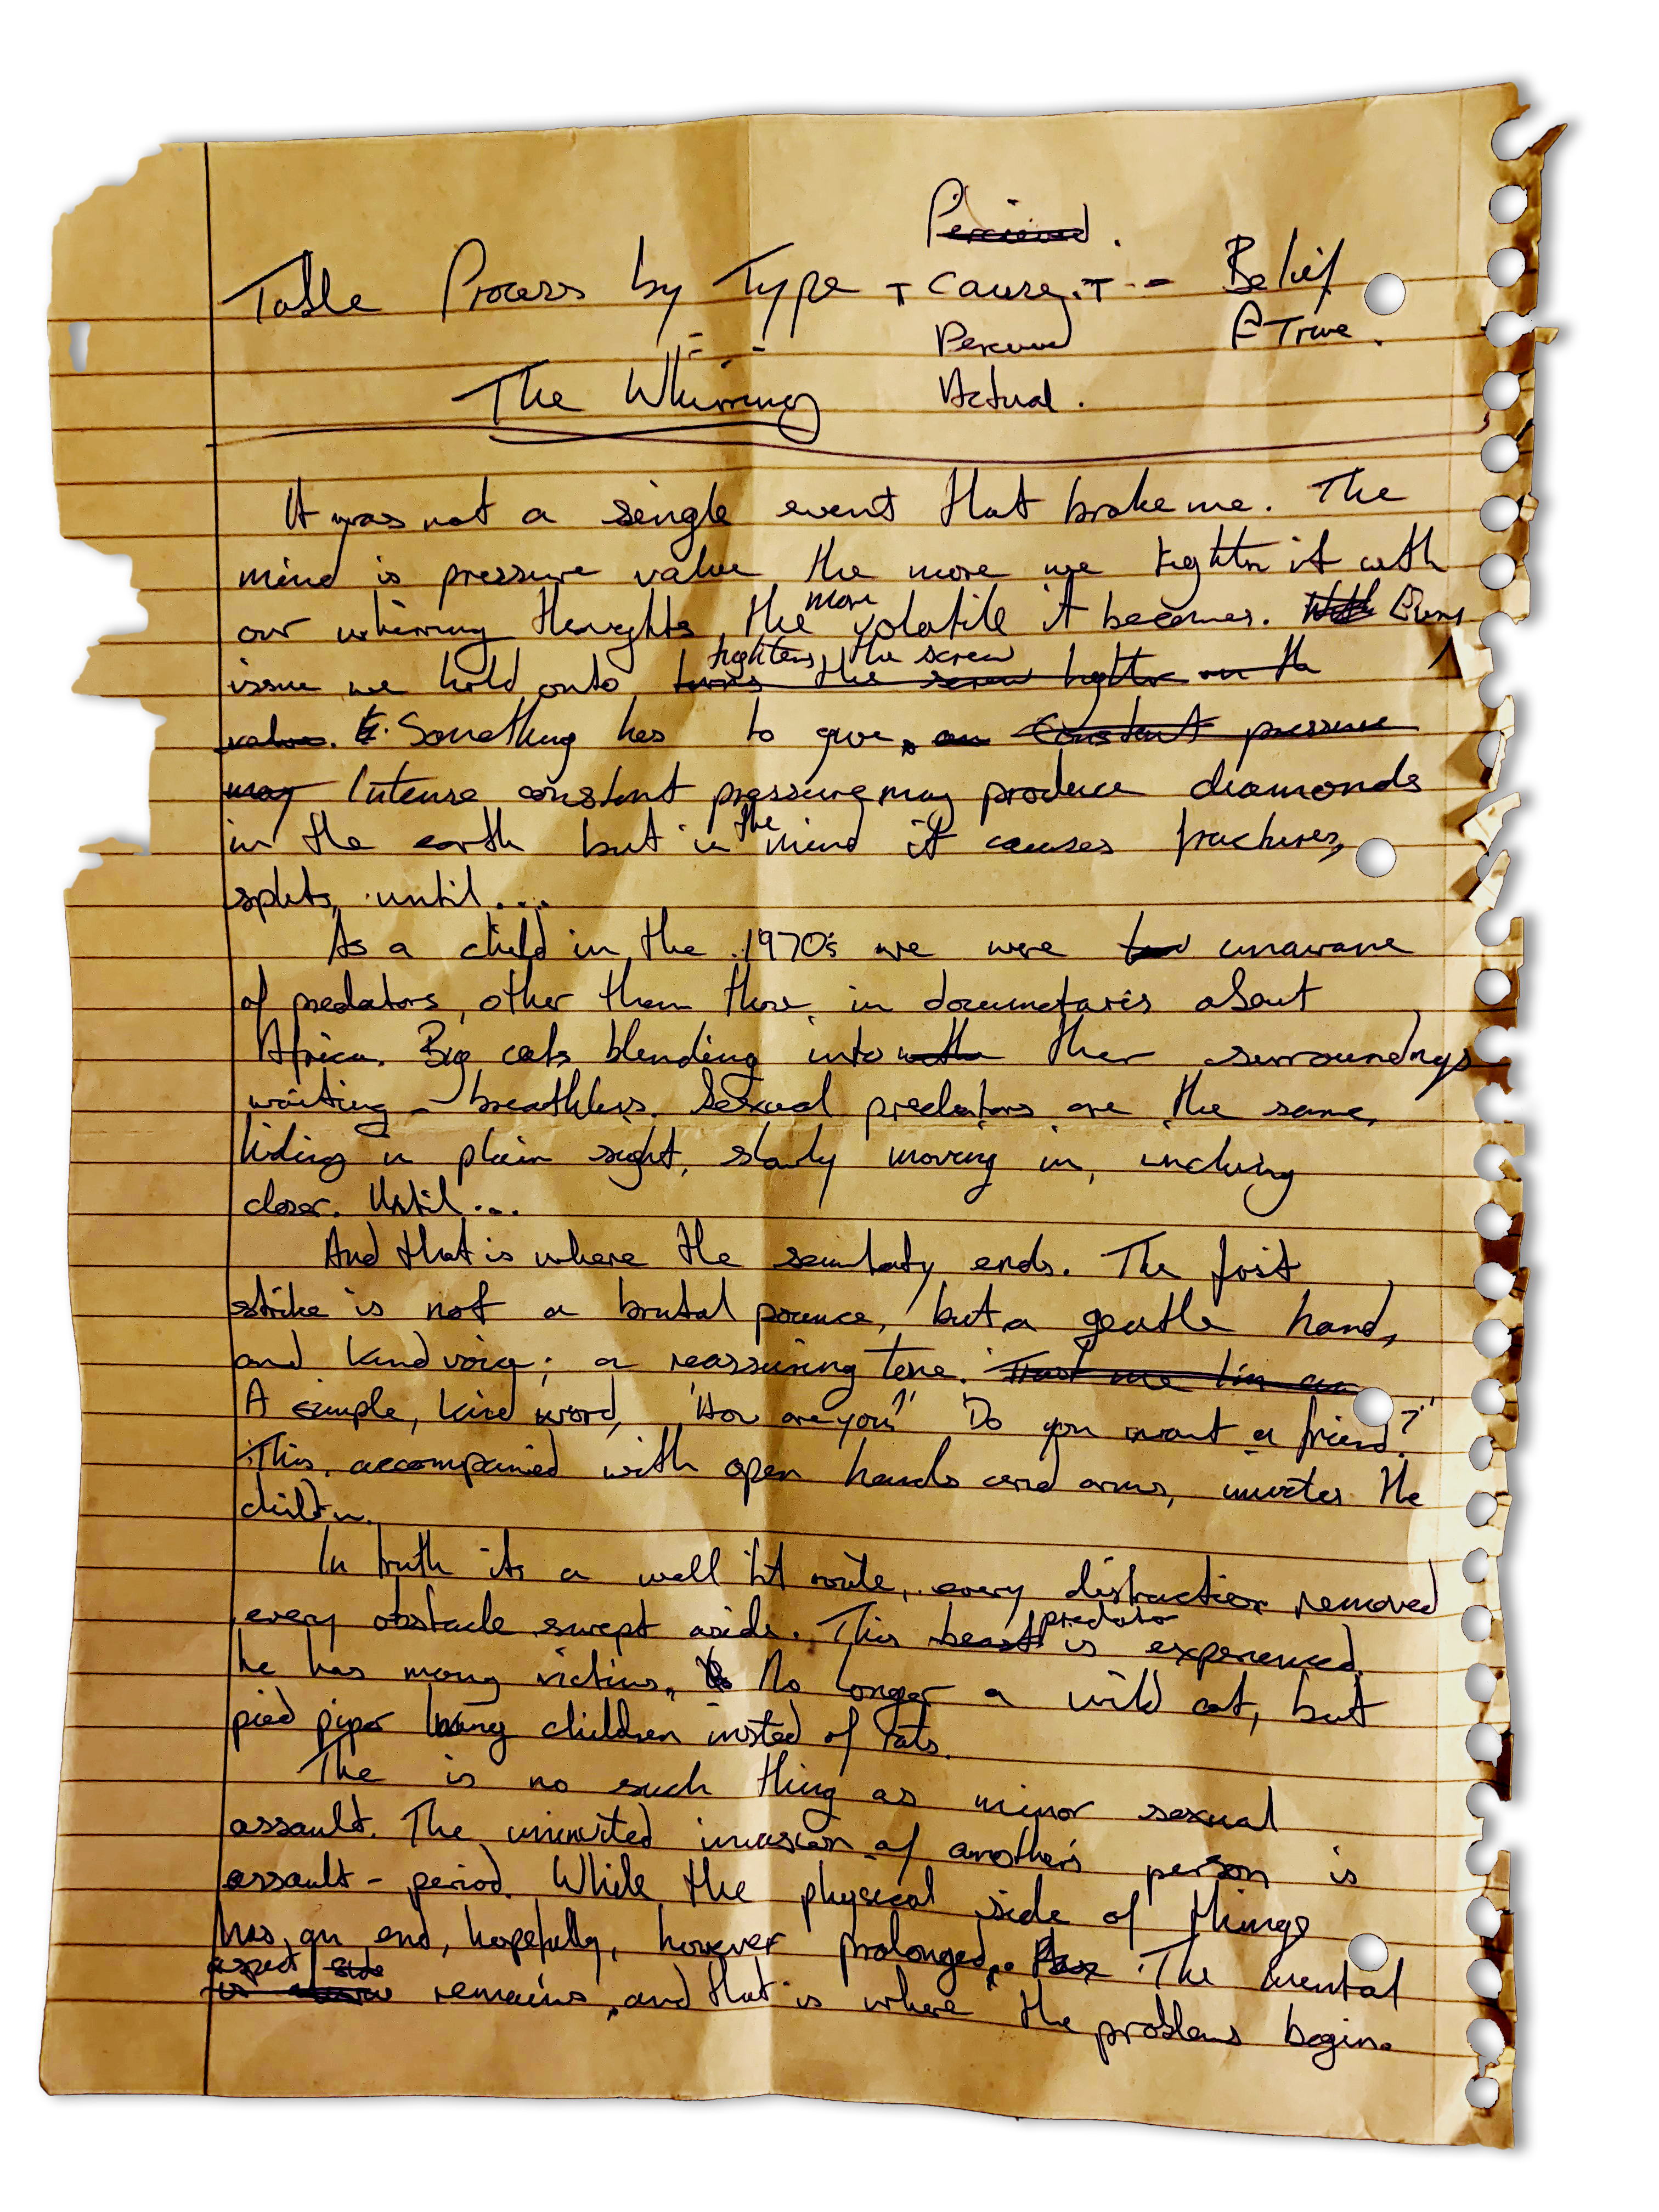 Percieved.
Table Process by Type + cause + - Belief
Percieved True.
The Whirring Actual.
It was not a single event that broke me. The
mind is pressure value, the more we tighten it with
our whirring thoughts, the more volatile it becomes. Every
issue we hold onto tightens the screw turns the screw tighter on the
valve. Something has to give, an Constant pressure
may Intense constant pressure may produce diamonds
in the earth but in the mind it causes fractures,
splits, until...
As a child in the 1970's we were unaware
of predators, other than those in documetaris about
Africa. Big cats blending into with their surroundings
waiting - breathless. Sexual predators are the same,
hiding in plain sight, slowly moving in, inching
closer. Until...
And that is where the ends. The first
strike is not a brutal pounce, but a gentle hand,
and kind voice; a reassuring tone. Trust me I'm an
A simple, kind word, 'How are you?' 'Do you want a friend?'
This, accompanied with open hands and arms, invites the
child in.
In truth its a well lit route, every distraction removed
every obstacle swept aside. This beast predator is experienced,
he has many victims. No longer a wild cat, but
pied piper children insted of rats.
The is no such thing as minor sexual
assault. The uninvited invasion of another's person is
assault - period. While the physical side of things
has an end, hopefully, however prolonged. The mental
aspect side is remains, and that is where the problems begin.